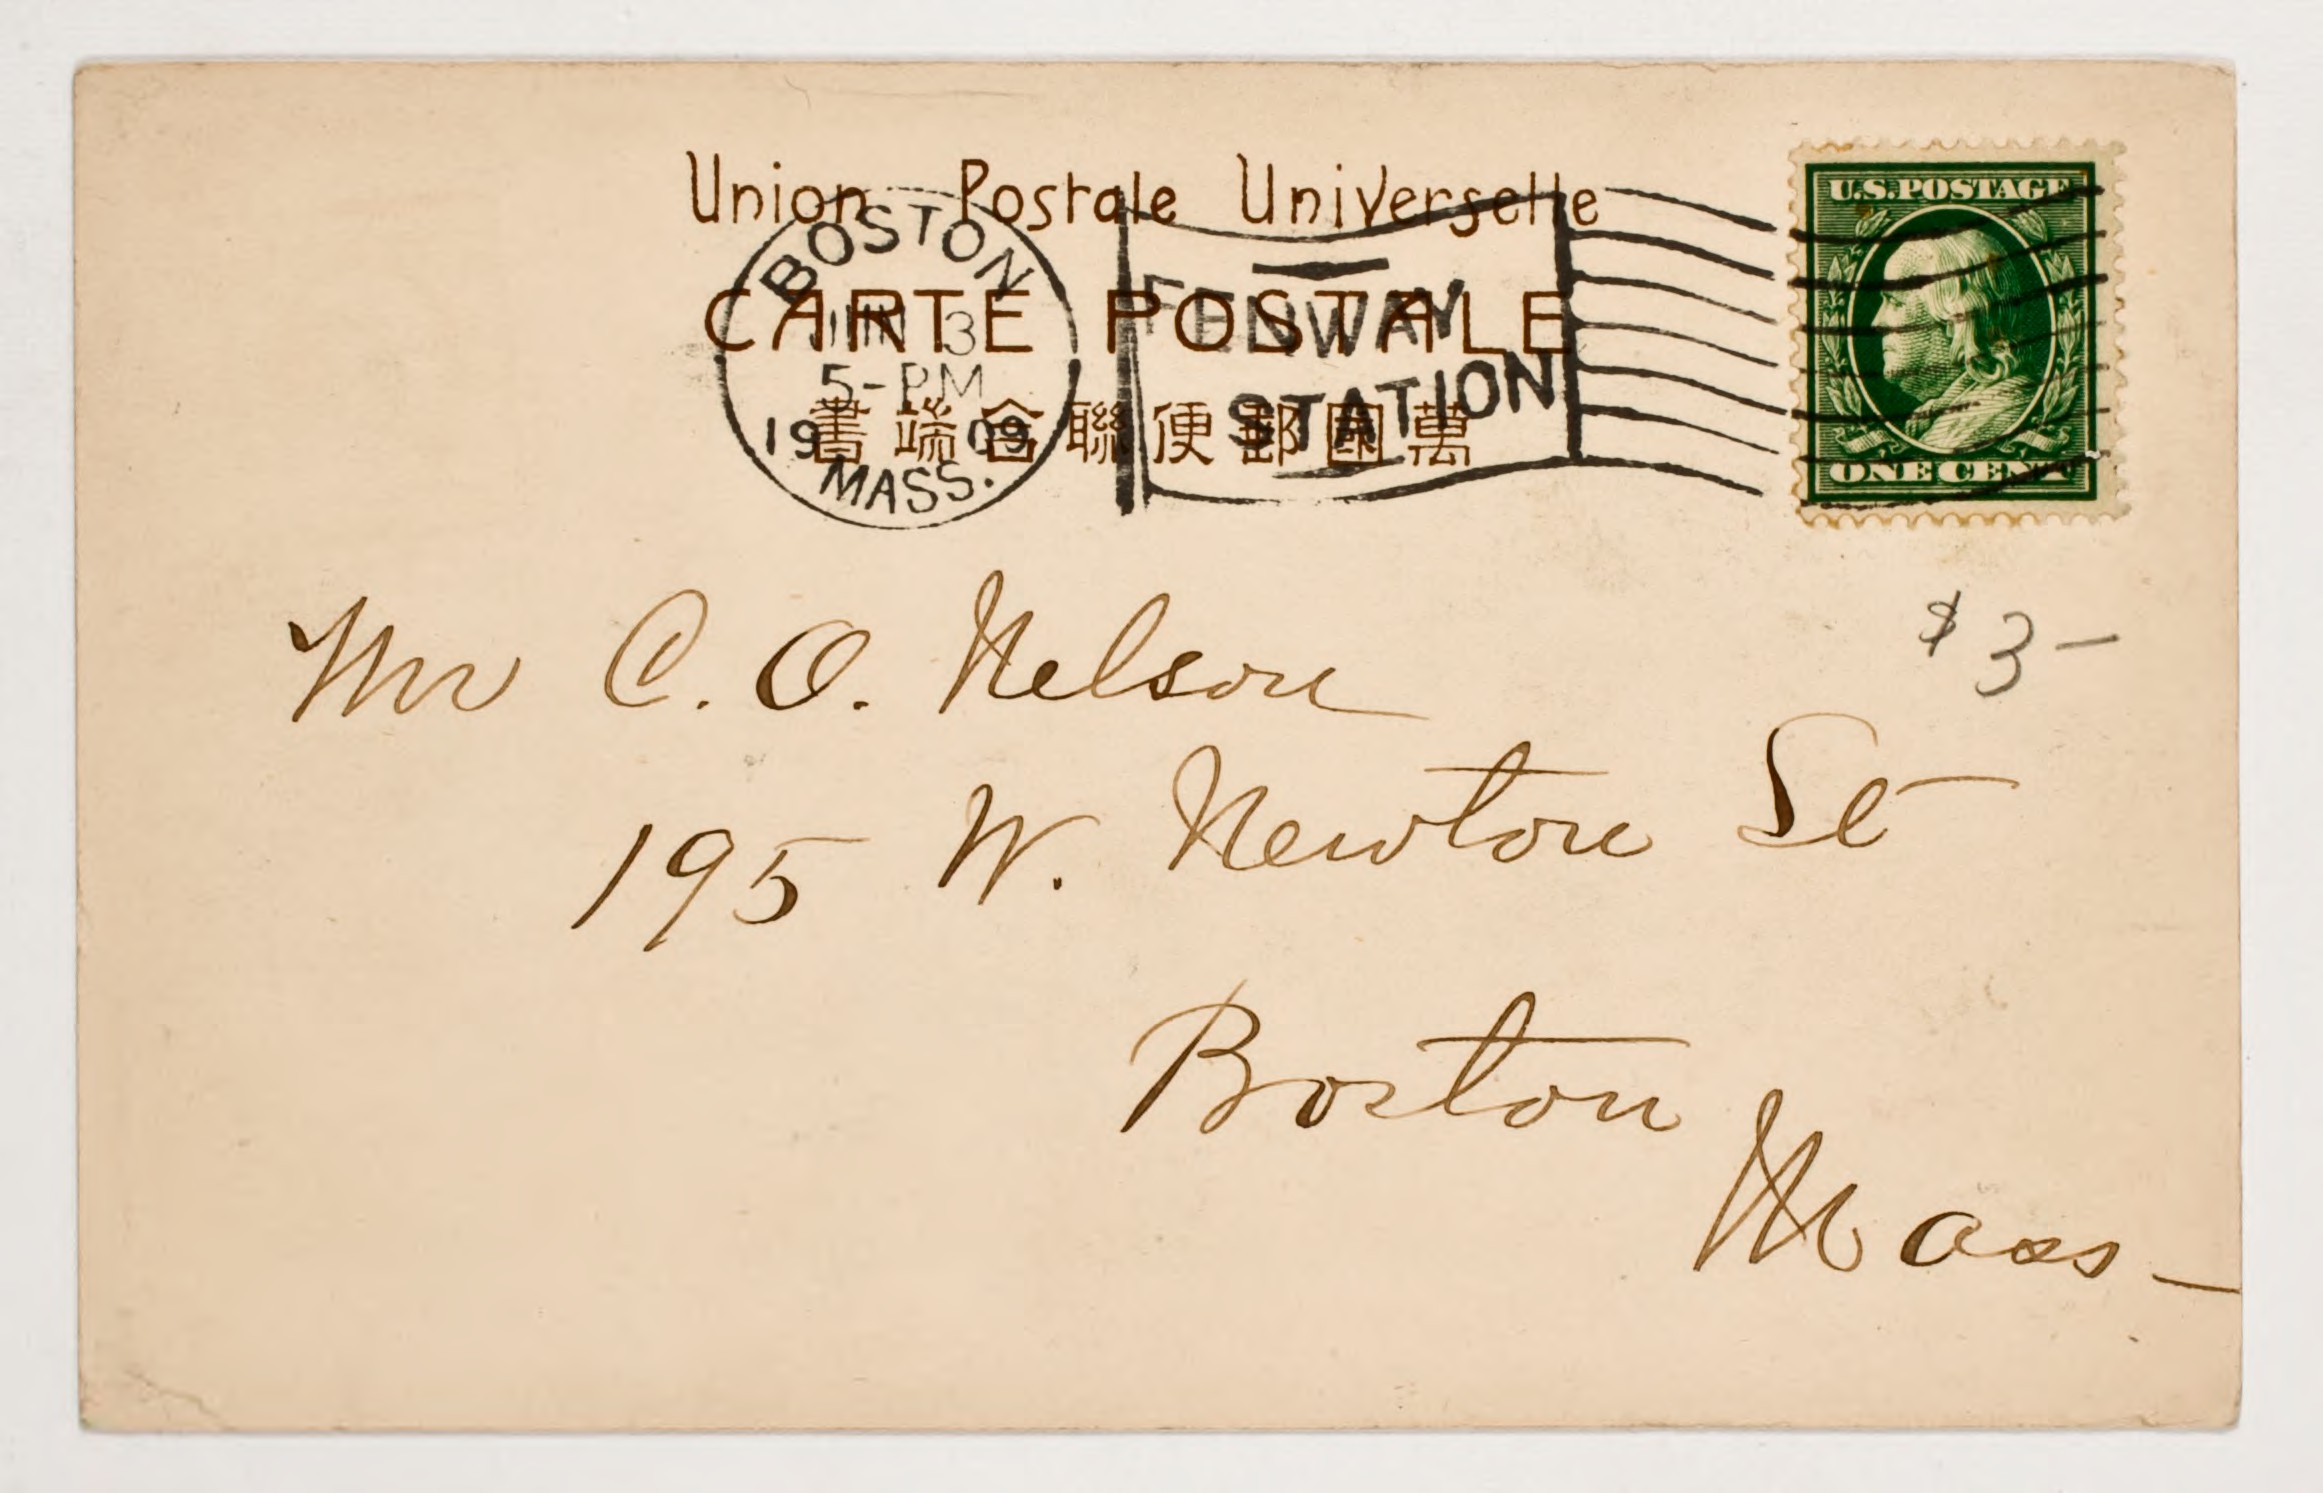 Union Postale Universelle
CARTE POSTALE
書端合聯便郵國萬
BOSTON
JUN 3
5-PM
1909
MASS.
FENWAY
STATION
U.S. POSTAGE
ONE CENT
$3-
Mr C. O. Nelson
195 W. Newton St
Boston
Mass-